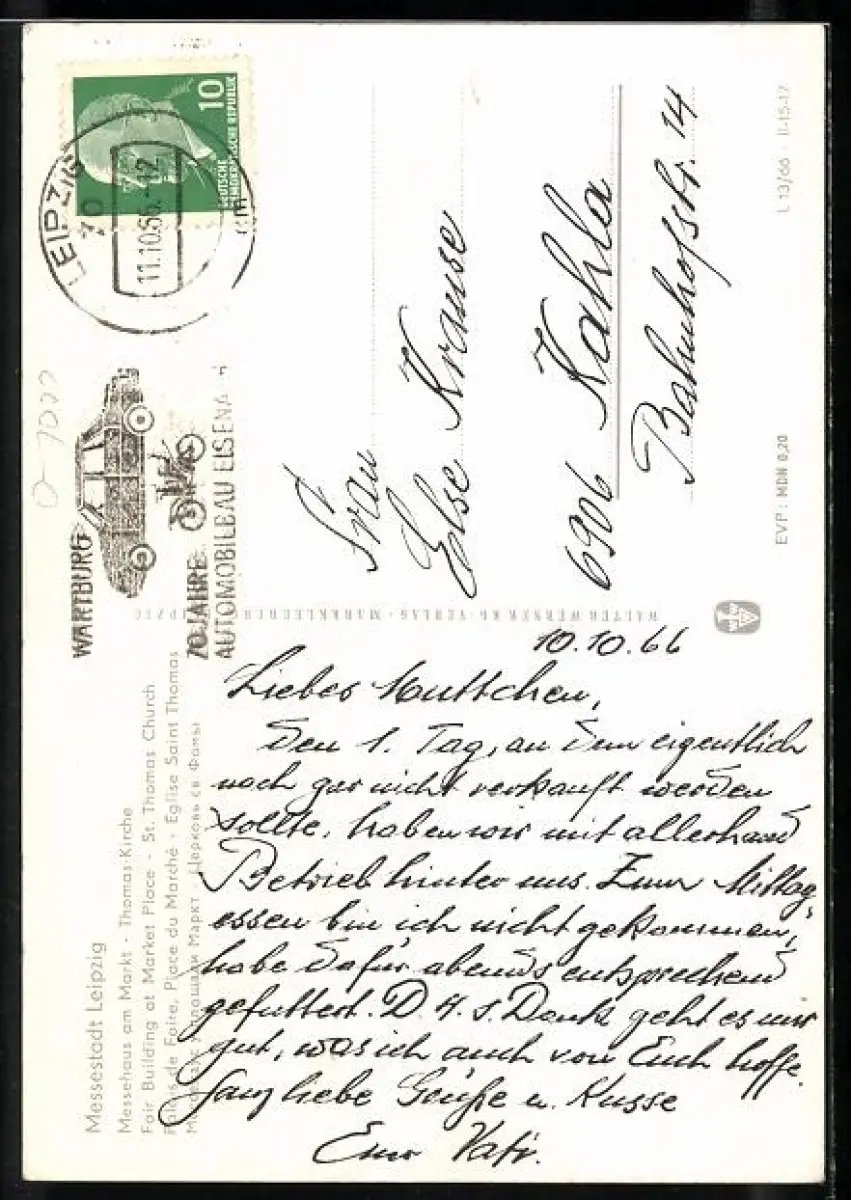 DEUTSCHE
DEMOKRATISCHE REPUBLIK
10
LEIPZIG
70
11.10.66.-12
WARTBURG
70 JAHRE
AUTOMOBILBAU EISENA H
Frau
Else Krause
6906 Kahla
Bahnhofstr. 14
L 13/66 · II-15-17
EVP: MDN 0,20
WALTER WERNER KG · VERLAG · MARKKLEEBERG LEIPZIG
Messestadt Leipzig
Messehaus am Markt - Thomas-Kirche
Fair Building at Market Place - St. Thomas Church
Palais de Foire, Place du Marché - Eglise Saint Thomas
Маркт - Церковь св Фомы
10.10.66
Liebes Muttchen,
den 1. Tag, an dem eigentlich
noch gar nicht verkauft werden
sollte, haben wir mit allerhand
Betrieb hinter uns. Zum Mittag-
essen bin ich nicht gekommen,
habe dafür abends entsprechend
gefuttert. D. H. s. Dank geht es mir
gut, was ich auch von Euch hoffe.
Ganz liebe Grüße u. Küsse
Euer Vati.